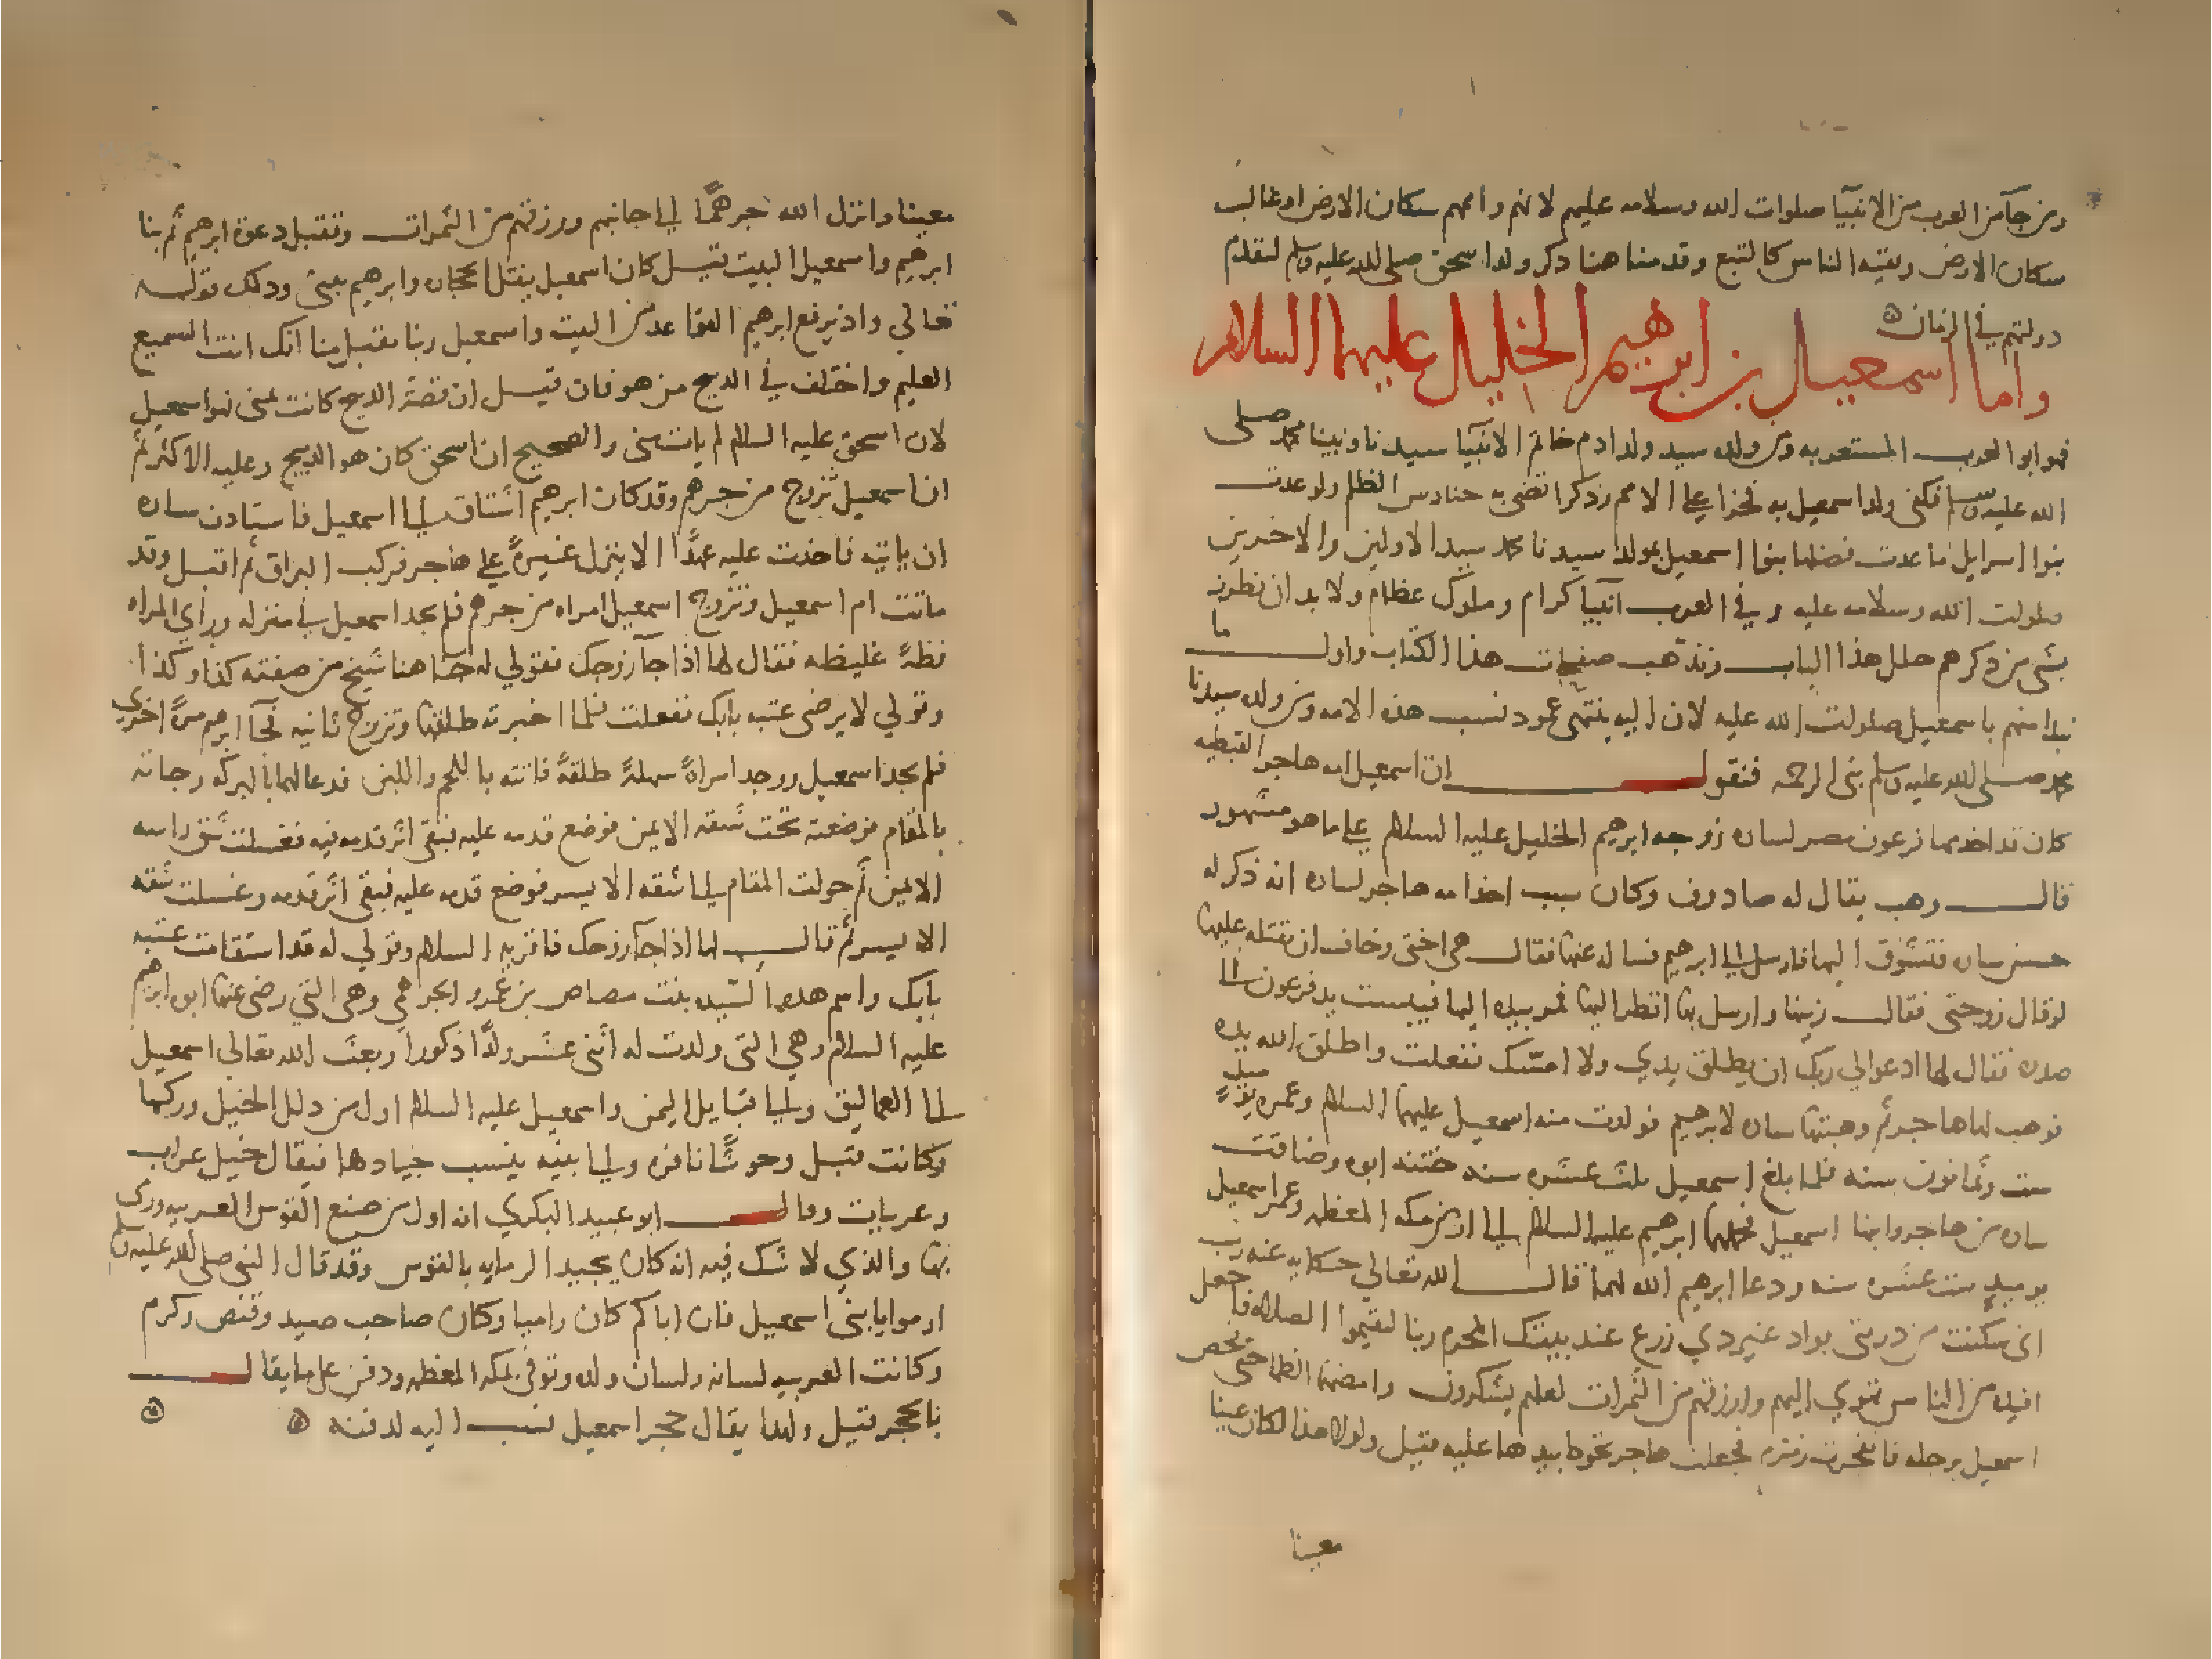 ومن جآ من العرب من الانبيآ صلوات الله وسلامه عليهم لانهم واممهم سكان الارض او غالب
سكان الارض وبقيه الناس كالتبع وقدمنا هنا دكر ولد اسحق صلى الله عليه وسلم لتقدم
دولتهم في الزمان
واما اسمعيل بن ابرهيم الخليل عليهما السلام
فهو ابو العرب المستعربه ومن ولده سيد ولد ادم خاتم الانبيآ سيدنا ونبينا محمد صلى
الله عليه وسلم فكفى ولد اسمعيل به فخرا على الامم وذكرا تضي به حنادس الظلم ولو عدت
بنوا اسرايل ما عدت فضلها بنوا اسمعيل بمولد سيدنا محمد سيد الاولين والاخرين
صلوات الله وسلامه عليه وفي العرب انبيا كرام وملوك عظام ولا بد ان نطرز
بشي من دكرهم حلل هذا الباب ونذهب صفحات هذا الكتاب واول ما
نبدا منهم باسمعيل صلوات الله عليه لان اليه ينتهي عمود نسب هذه الامه ومن ولده سيدنا
محمد صلى الله عليه وسلم نبي الرحمه فنقول ان اسمعيل امه هاجر القبطيه
كان قد اخدمها فرعون مصر لساره زوجه ابرهيم الخليل عليه السلام على ما هو مشهور
قال وهب يقال له صادوف وكان سبب اخدامه هاجر لساره انه ذكر له
حسن ساره فتشوق اليها فارسل الى ابرهيم فساله عنها فقال هي اختي وخاف ان يقتله عليها
لو قال زوجتي فقال زينها وارسل بها انظر اليها فمد بيده اليها فيبست يد فرعون الى
صدره فقال لها ادعوالي ربك ان يطلق يدي ولا امسك ففعلت واطلق الله يده
فوهب لها هاجر ثم وهبتها ساره لابرهيم فولدت منه اسمعيل عليهما السلام وعمره يوميذ
ست وثمانون سنه فلما بلغ اسمعيل ثلث عشره سنه ختنه ابوه وضاقت
ساره من هاجر وابنها اسمعيل فحملهما ابرهيم عليه السلام الى ارض مكه المعظمه وعمر اسمعيل
يوميذ ست عشره سنه ودعا ابرهيم الله لهما قال الله تعالى حكايه عنه رب
انى سكنت من دريتى بواد غير دي زرع عند بيتك المحرم ربنا ليقيموا الصلاه فاجعل
افيده من الناس تهوي اليهم وارزقهم من الثمرات لعلهم يشكرون وامضهما الظما حتى فحص
اسمعيل برجله فانفجرت زمزم فجعلت هاجر تحوط بيدها عليه فقيل ولولا هذا لكان عينا
معينا
معينا وانزل الله جرهمًا الى جانبهم ورزقهم من الثمرات وتقبل دعوة ابرهيم ثم بنا
ابرهيم واسمعيل البيت قيل كان اسمعيل ينقل الحجاره وابرهيم يبنى ودلك قوله
تعالى واذ يرفع ابرهيم القواعد من البيت واسمعيل ربنا تقبل منا انك انت السميع
العليم واختلف في الدبيح من هو فان قيل ان قصة الدبح كانت بمنى فهو اسمعيل
لان اسحق عليه السلام لم يات منى والصحيح ان اسحق كان هو الدبيح وعليه الاكثر ثم
ان اسمعيل تزوج من جرهم وقد كان ابرهيم اشتاق الى اسمعيل فاستادن ساره
ان ياتيه فاخذت عليه عهدًا الا ينزل غيرةً على هاجر فركب البراق ثم اقبل وقد
ماتت ام اسمعيل وتزوج اسمعيل امراه من جرهم فلم يجد اسمعيل في منزله وراي المراه
فظةً غليظه فقال لها اذا جآ زوجك فقولي له جا هنا شيخ من صفته كذا وكذا
وقولي لا يرضى عتبه بابك ففعلت فلما اخبرته طلقها وتزوج ثانيه فجآ ابرهيم مرةً اخري
فلم يجد اسمعيل ووجد امراةً سهلةً طلقةً فاتته باللحم واللبن فدعا لهما بالبركه وجاته
بالمقام فوضعته تحت شقه الايمن فوضع قدمه عليه فبقى اثر قدمه فيه فغسلت شق راسه
الايمن ثم حولت المقام الى شقه الايسر فوضع قدمه عليه فبقى اثر قدمه وغسلت شقه
الايسر ثم قال لها اذا جآ زوجك فاقريه السلام وقولي له قد استقامت عتبه
بابك واسم هده السيده بنت مضاض بن عمرو الجرهمي وهى التي رضى عنها ابوه ابرهيم
عليه السلام وهي التى ولدت له اثنى عشر ولدًا ذكورا وبعث الله تعالى اسمعيل
الى العماليق والى قبايل اليمن واسمعيل عليه السلام اول من دلل الخيل وركبها
وكانت قبل وحوشًا نافره والى بنيه ينسب جيادها فيقال خيل عراب
وعربيات وقال ابو عبيد البكري انه اول من صنع القوس العربيه ورمى
بها والذي لا شك فيه انه كان يجيد الرمايه بالقوس وقد قال النبي صلى الله عليه وسلم
ارموا يا بنى اسمعيل فان اباكم كان راميا وكان صاحب صيد وقنص وكرم
وكانت العربيه لسانه ولسان ولده وتوفى بمكه المعظمه ودفن على ما يقال
بالحجر فقيل ولهدا يقال حجر اسمعيل نسب اليه لدفنه